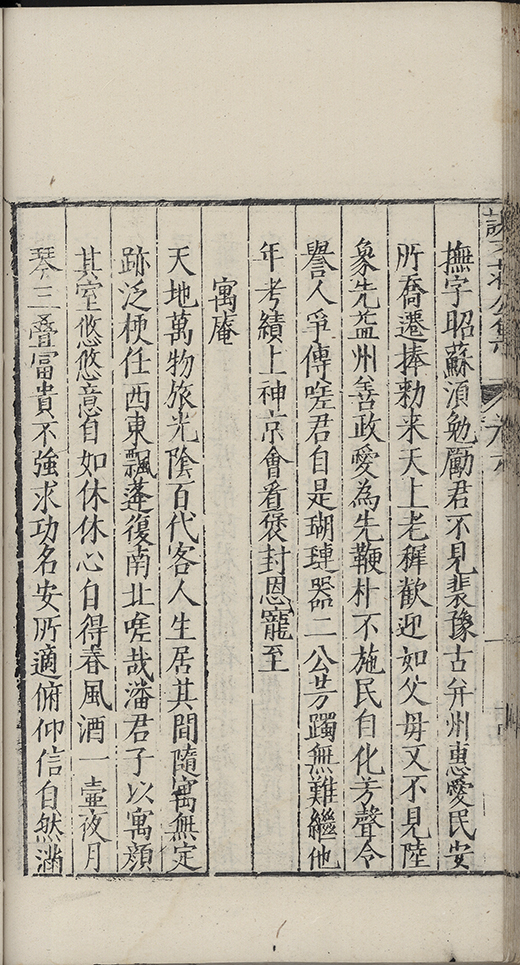 撫字昭蘇湏勉勵君不見裴豫古并州惠愛民安
所喬遷捧勅来天上老穉歡迎如父母又不見陸
象先益州善政愛為先鞭朴不施民自化芳聲令
譽人爭傳嗟君自是瑚璉器二公芳躅無難繼他
年考績上神京會看褒封恩寵至
寓庵
天地萬物旅光陰百代客人生居其間隨寓無定
跡泛梗任西東飄蓬復南北嗟哉潘君子以寓顔
其室悠悠意自如休休心自得春風酒一壷夜月
琴三疊富貴不強求功名安所適俯仰信自然滿